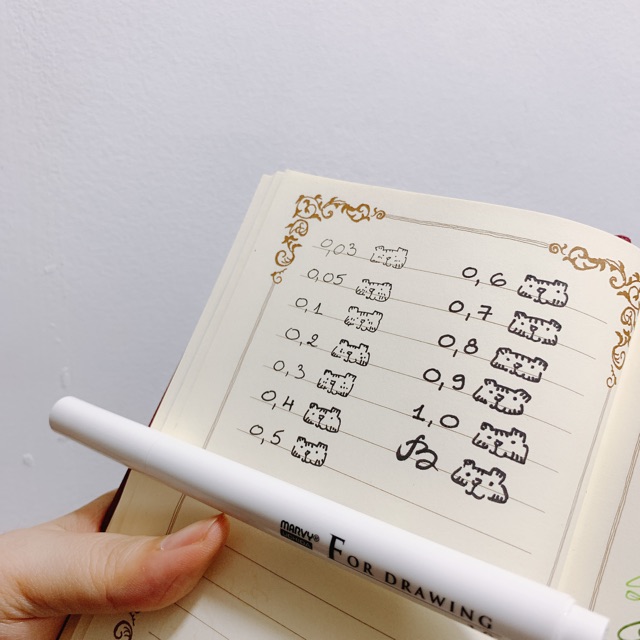 0,03
0,05
0,1
0,2
0,3
0,4
0,5
0,6
0,7
0,8
0,9
1,0
MARVY®
FOR DRAWING